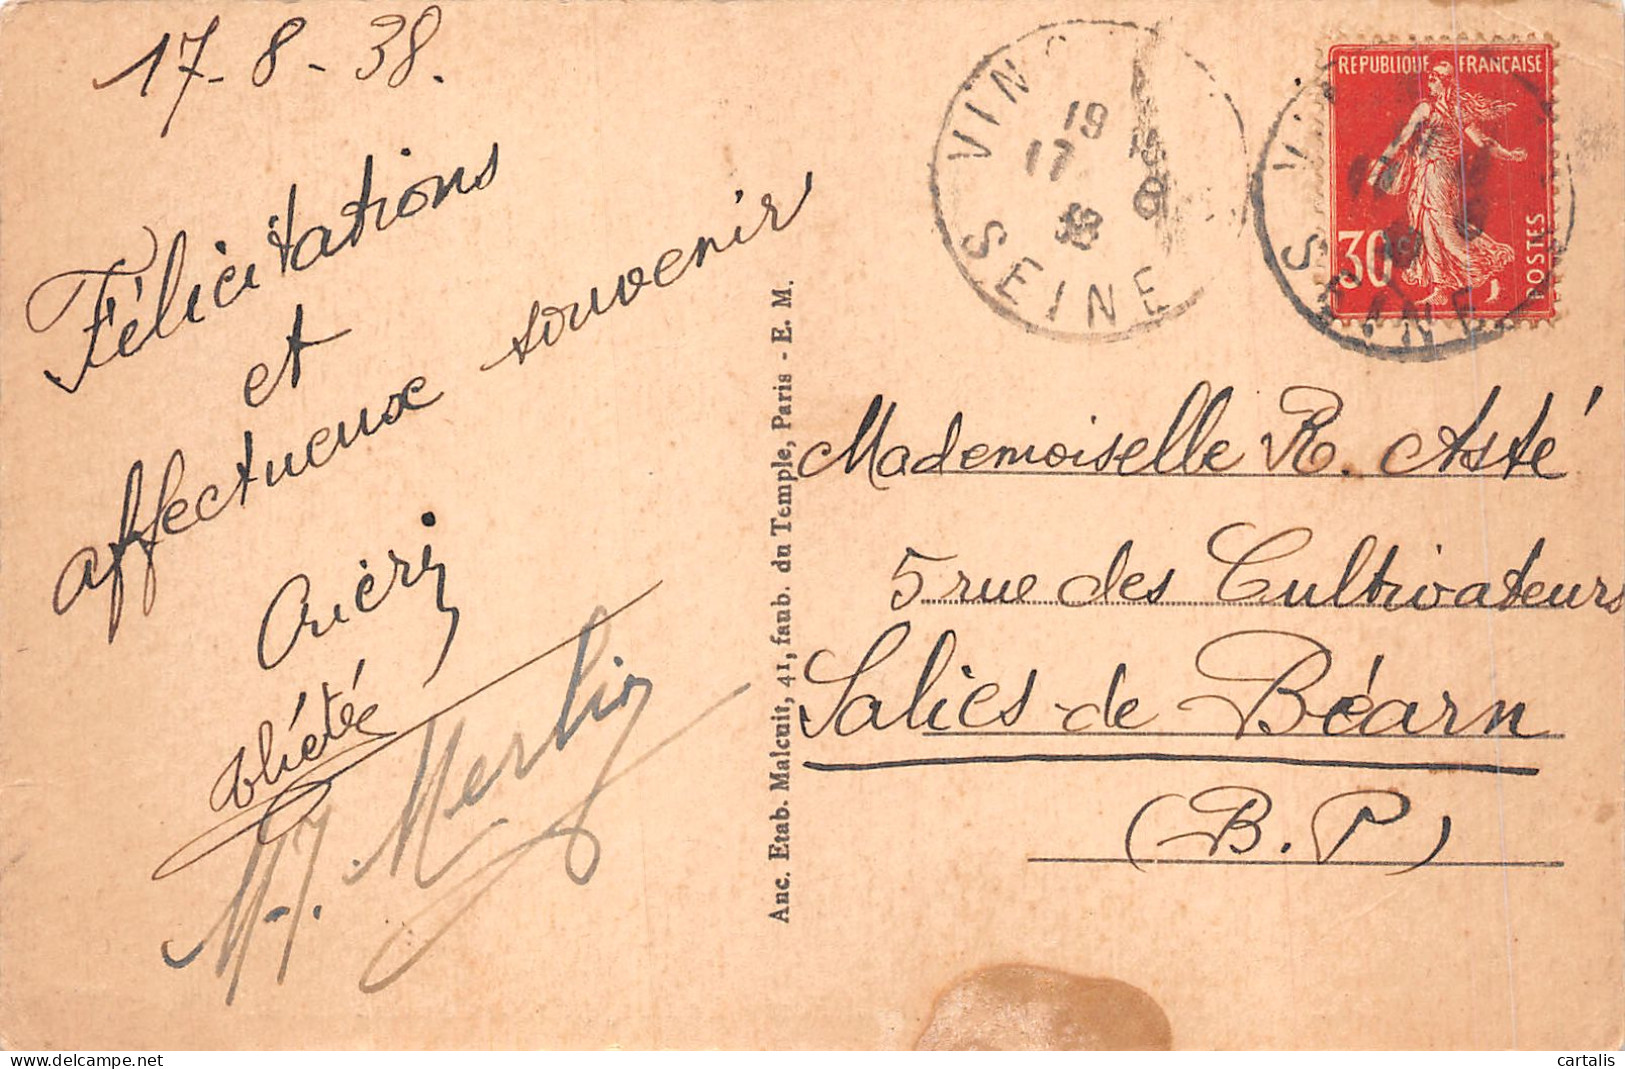 17-8-38.
Félicitations
et
affectueux souvenir
M.J. Merlin
Anc. Etab. Malcuit, 41, faub. du Temple, Paris - E. M.
VINC
19
17 8
38
SEINE
REPUBLIQUE FRANÇAISE
30
POSTES
Mademoiselle R. Asté
5 rue des Cultivateurs
Salies-de Béarn
(B.P)
cartalis